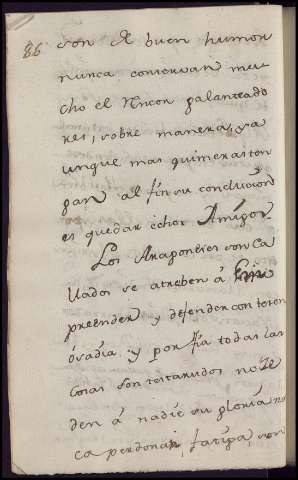 86
son de buen humor
nunca conservan mu-
cho el Rincon galanteado
res, sobre manera, ya
unque mas quimeras ten
gan al fin su conclucion
es quedar echos Amigos.
Los Aragoneses son Ca
llados se atreben á Em
preender y defender con teren
óvadia y por fia todas las
Cosas son testarudos no Ze
den á nadie su gloria, n
ca perdonan, fatiga, son